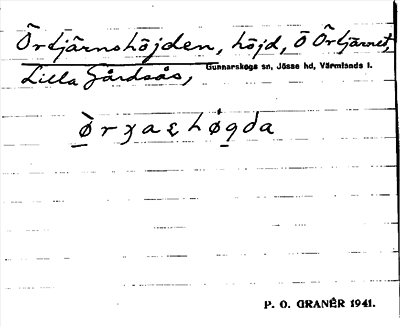 Örtjärnshöjden, höjd, Ö Örtjärnet,
Gunnarskogs sn, Jösse hd, Värmlands l.
Lilla Gårdsås,
P. O. GRANÉR 1941.